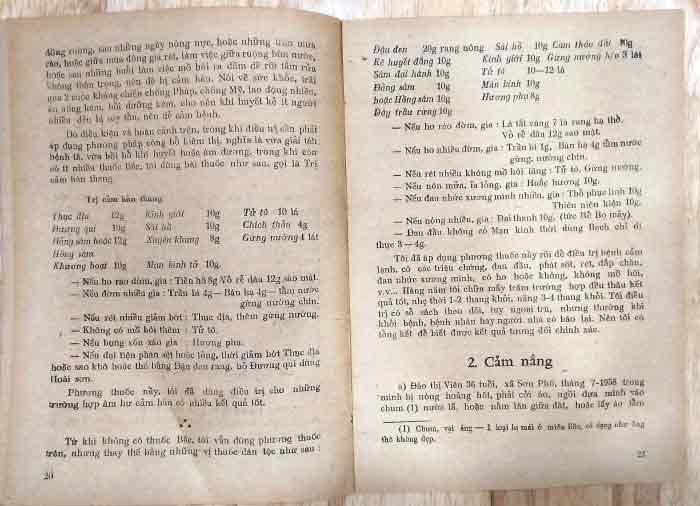 đồng ruộng, sau những ngày nóng nực, hoặc những trận mưa
rào, hoặc giữa mùa đông giá rét, làm việc giữa ruộng bùn nước,
hoặc sau những buổi làm việc mồ hôi ra đầm đề rồi tắm rửa
không thận trọng, nên dễ bị cảm hàn. Nói về sức khỏe, trải
qua 2 cuộc kháng chiến chống Pháp, chống Mỹ, lao động nhiều,
ăn uống kém, bồi dưỡng kém, cho nên khí huyết hồ ít người
nhiều đều bị suy tồn, nên dễ cảm bệnh.
Do điều kiện và hoàn cảnh trên, trong khi điều trị cần phải
áp dụng phương pháp công bổ kiêm thi, nghĩa là vừa giải tát
bệnh tà, vừa bồi bổ khí huyết hoặc âm dương, trong khi còn
có ít nhiều thuốc Bắc, tôi dùng bài thuốc như sau, gọi là Trị
cảm hàn thang
Trị cảm hàn thang
Thục địa 12g Kinh giới 10g Tử tô 10 lá
Đương qui 10g Sài hồ 10g Chích thảo 4g
Hồng sâm hoặc 12g Xuyên khung 8g Gừng nướng 4 lát
Hồng sâm
Khương hoạt 10g Mạn kinh tử 10g.
— Nếu ho ráo đờm, gia : Tiền hồ 8g Vỏ rễ dâu 12g sao mật.
— Nếu đờm nhiều gia : Trần bì 4g — Bán hạ 4g — tẩm nước
gừng nướng chín.
— Nếu rét nhiều giảm bớt : Thục địa, thêm gừng nướng.
— Không có mồ hôi thêm : Tử tô.
— Nếu bụng xốn xáo gia : Hương phụ.
— Nếu đại tiện phân sệt hoặc lỏng, thời giảm bớt Thục địa
hoặc sao khô hoặc thế bằng Đậu đen rang, bỏ Đương qui dùng
Hoài sơn.
Phương thuốc nầy, tôi đã dùng điều trị cho những
trường hợp âm hư cảm hàn có nhiều kết quả tốt.
Từ khi không có thuốc Bắc, tôi vẫn dùng phương thuốc
trên, nhưng thay thế bằng những vị thuốc dân tộc như sau :
20
Đậu đen 20g rang nóng Sài hồ 10g Cam thảo đất 10g
Kê huyết đằng 10g Kinh giới 10g Gừng nướng 3 lát
Sâm đại hành 10g Tử tô 10—12 lá
Đảng sâm 10g Mán kinh 10g
hoặc Hồng sâm 10g Hương phụ 8g
Dây trâu rừng 10g
— Nếu ho ráo đờm, gia : Lá tắt vàng 7 lá rang hạ thổ.
Vỏ rễ dâu 12g sao mật.
— Nếu ho nhiều đờm, gia : Trần bì 4g, Bán hạ 4g tẩm nước
gừng, nướng chín.
— Nếu rét nhiều không mồ hôi tăng : Tử tô, Gừng nướng.
— Nếu nôn mửa, ỉa lỏng, gia : Hoắc hương 10g.
— Nếu đau nhức xương mình nhiều, gia : Thổ phục linh 10g
Thiên niên kiện 10g.
— Nếu nóng nhiều, gia : Đại thanh 10g, (tức Bồ Bo mẩy).
— Đau đầu không có Mạn kinh thời dùng Bạch chỉ dĩ
thực 3 — 4g.
Tôi đã áp dụng phương thuốc nầy rồi để điều trị bệnh cảm
lạnh, có các triệu chứng, đau đầu, phát sốt, rét, đắp chăn,
đau nhức xương mình, có ho hoặc không, không mồ hôi,
v.v... Hàng năm tôi chữa mấy trăm trường hợp đều thâu kết
quả tốt, nhẹ thời 1-2 thang khỏi, nặng 3-4 thang khỏi. Tôi điều
trị có sổ sách theo dõi, tuy ngoại trú, nhưng thường khi
khỏi bệnh, bệnh nhân hay người nhà có báo lại. Nên tôi có
tổng kết để biết được kết quả tương đối chính xác.
2. Cảm nắng
a) Đào thị Viên 36 tuổi, xã Sơn Phú, tháng 7-1958 trong
mình bị nóng hoảng hốt, phải cởi áo, ngồi dựa mình vào
chum (1) nước lã, hoặc nằm lăn giữa đất, hoặc lấy áo tẩm
(1) Chum, vại ảng — 1 loại lu mái ở miền Bắc, có dạng như ống
thô không đẹp.
21